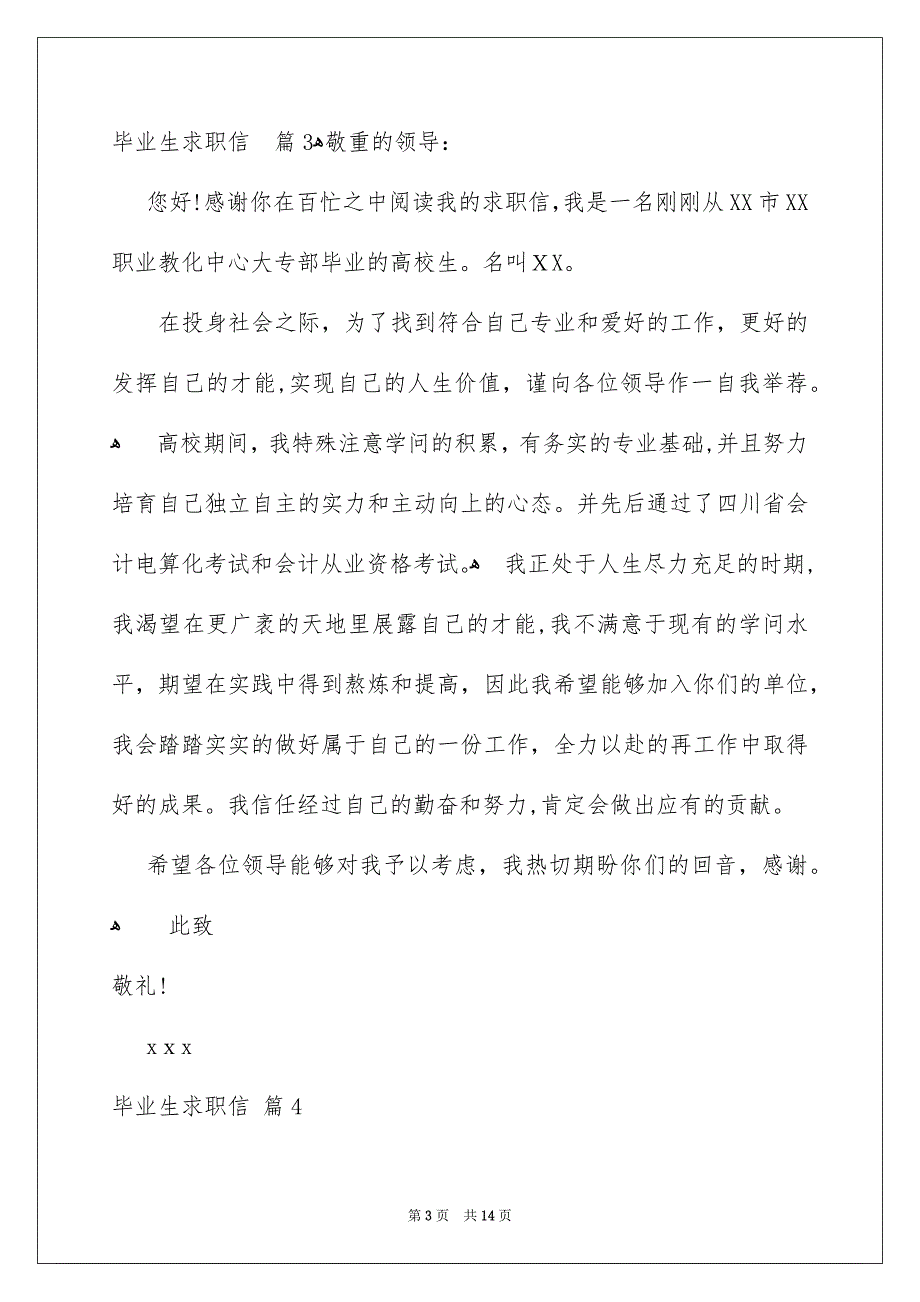 毕业生求职信　篇3ﻫ敬重的领导：
您好!感谢你在百忙之中阅读我的求职信,我是一名刚刚从XX市XX
职业教化中心大专部毕业的高校生。名叫XX。
在投身社会之际，为了找到符合自己专业和爱好的工作，更好的
发挥自己的才能,实现自己的人生价值，谨向各位领导作一自我举荐。
ﻫ　高校期间，我特殊注意学问的积累，有务实的专业基础,并且努力
培育自己独立自主的实力和主动向上的心态。并先后通过了四川省会
计电算化考试和会计从业资格考试。ﻫ　我正处于人生尽力充足的时期,
我渴望在更广袤的天地里展露自己的才能,我不满意于现有的学问水
平，期望在实践中得到熬炼和提高，因此我希望能够加入你们的单位，
我会踏踏实实的做好属于自己的一份工作，全力以赴的再工作中取得
好的成果。我信任经过自己的勤奋和努力,肯定会做出应有的贡献。
希望各位领导能够对我予以考虑，我热切期盼你们的回音，感谢。
ﻫ　 此致
敬礼!
x x x
毕业生求职信 篇4
第 3 页 共 14 页